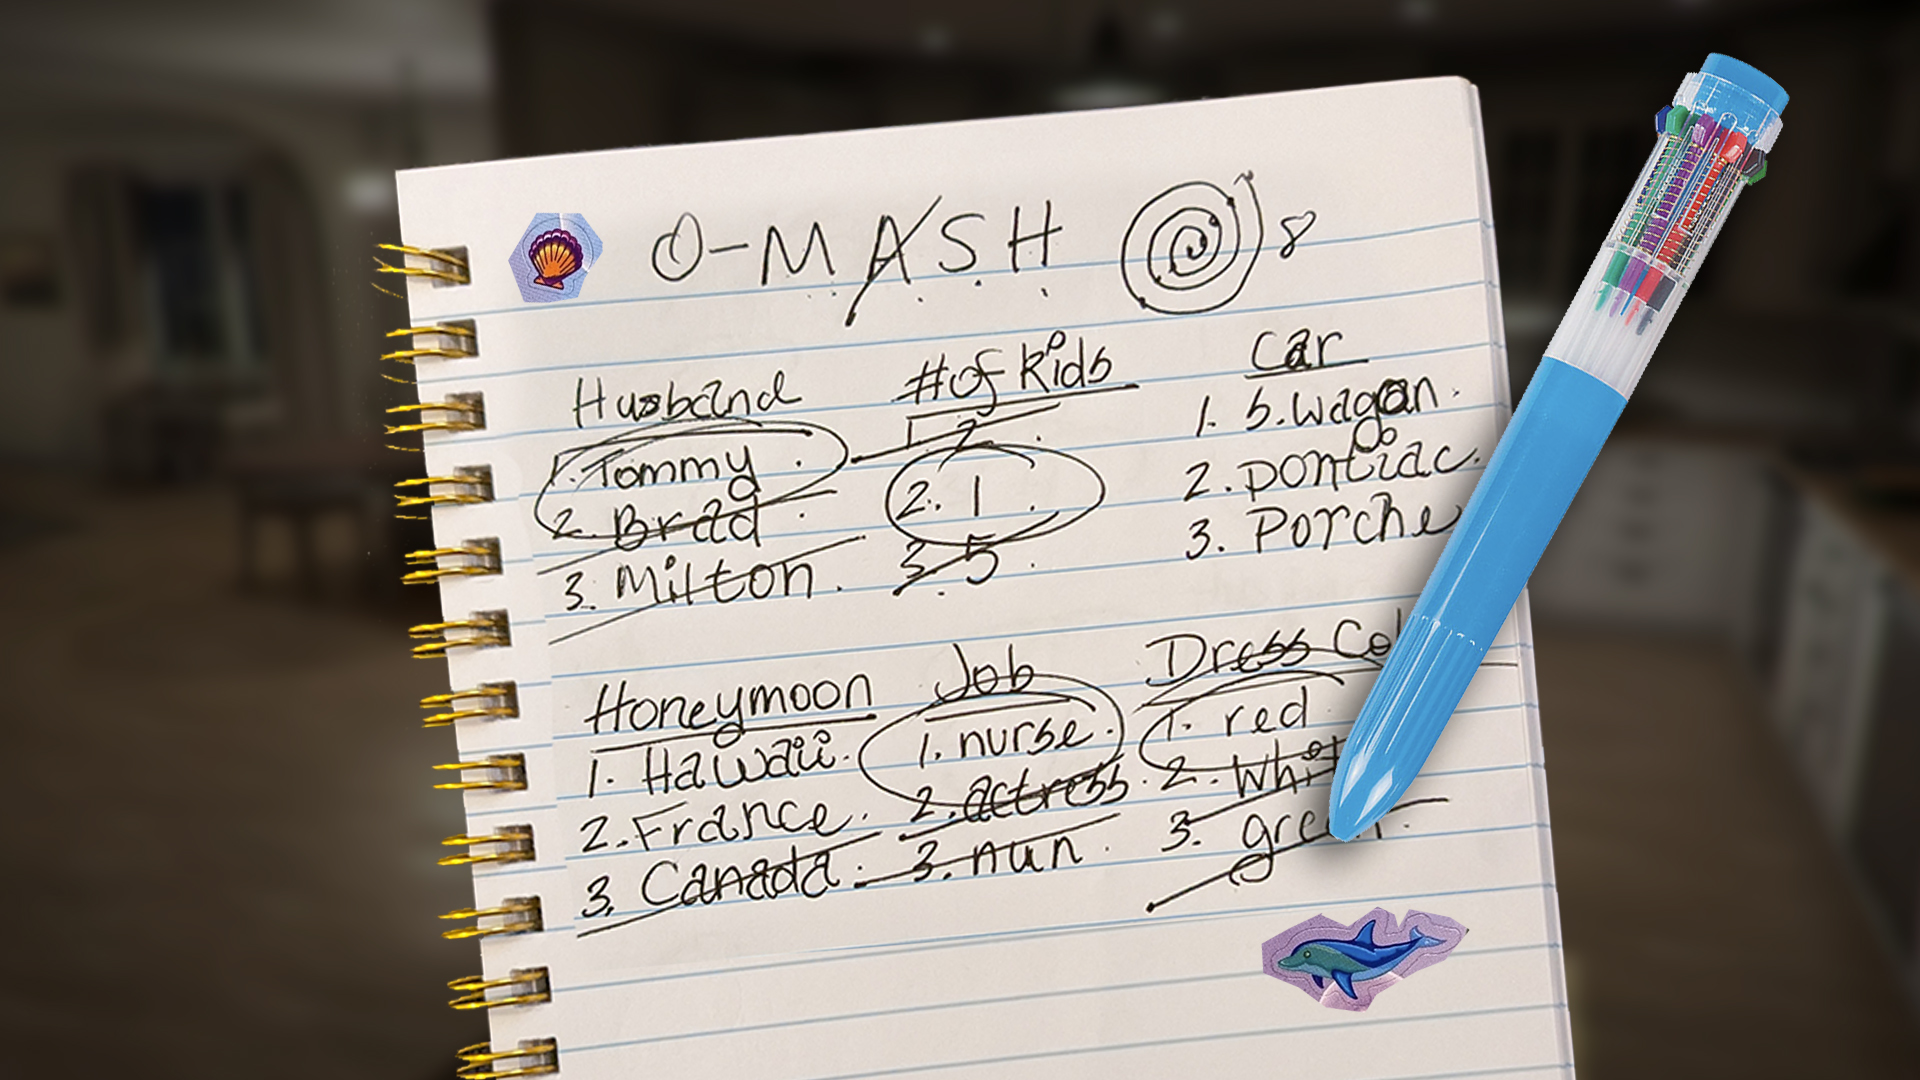 O-MASH 8
Husband
1. Tommy
2. Brad
3. Milton
# of Kids
1. 2
2. 1
3. 5
Car
1. S. wagon
2. pontiac
3. Porche
Honeymoon
1. Hawaii
2. France
3. Canada
Job
1. nurse
2. actress
3. nun
Dress Col
1. red
2. whit
3. green